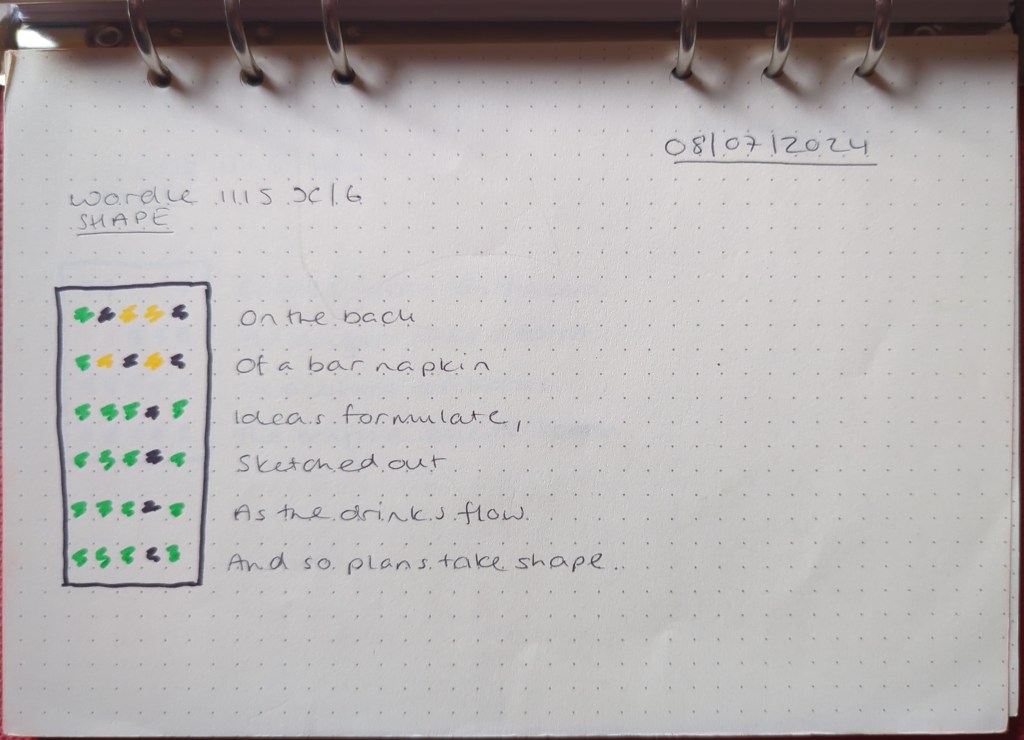 08/07/2024
Wordle 1115 X/6
SHAPE
On the back
Of a bar napkin
Ideas formulate,
Sketched out
As the drinks flow
And so plans take shape.